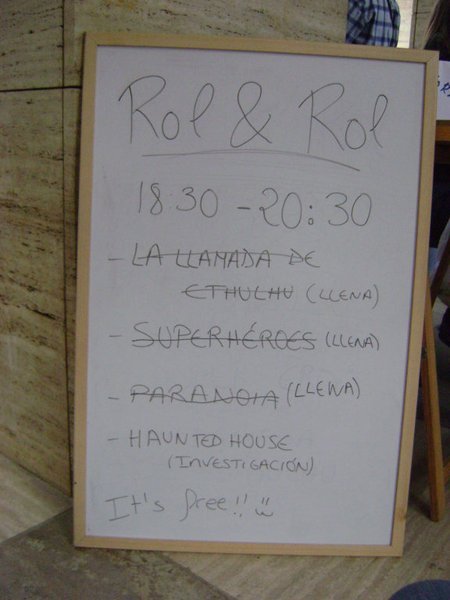 Rol & Rol
18:30 - 20:30
- LA LLAMADA DE
CTHULHU (LLENA)
- SUPERHÉROES (LLENA)
- PARANOIA (LLENA)
- HAUNTED HOUSE
(INVESTIGACIÓN)
It's free!! :)